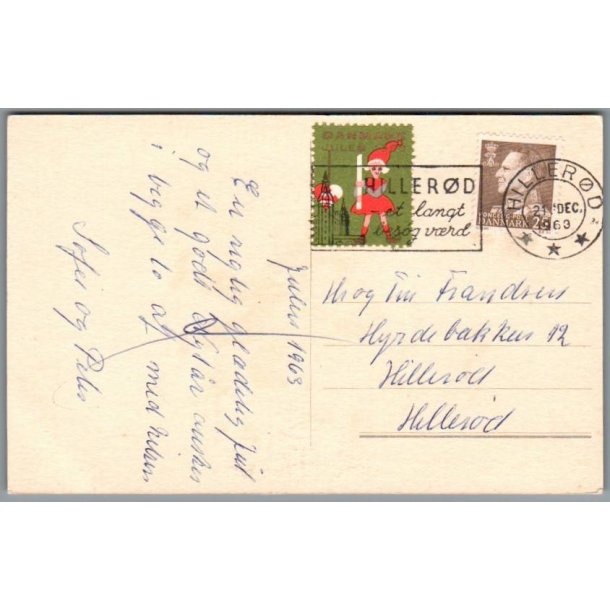 Julen 1963
En rigtig glædelig Jul
og et godt Nytår ønskes
I begge to af
med hilsen
Sofie og Peter
DANMARK
JULEN
HILLERØD
et langt
besøg værd
HILLERØD
21. DEC.
1963
DANMARK 25
Hr og Fru Frandsen
Hyrdebakken 12
Hillerød
Hillerød